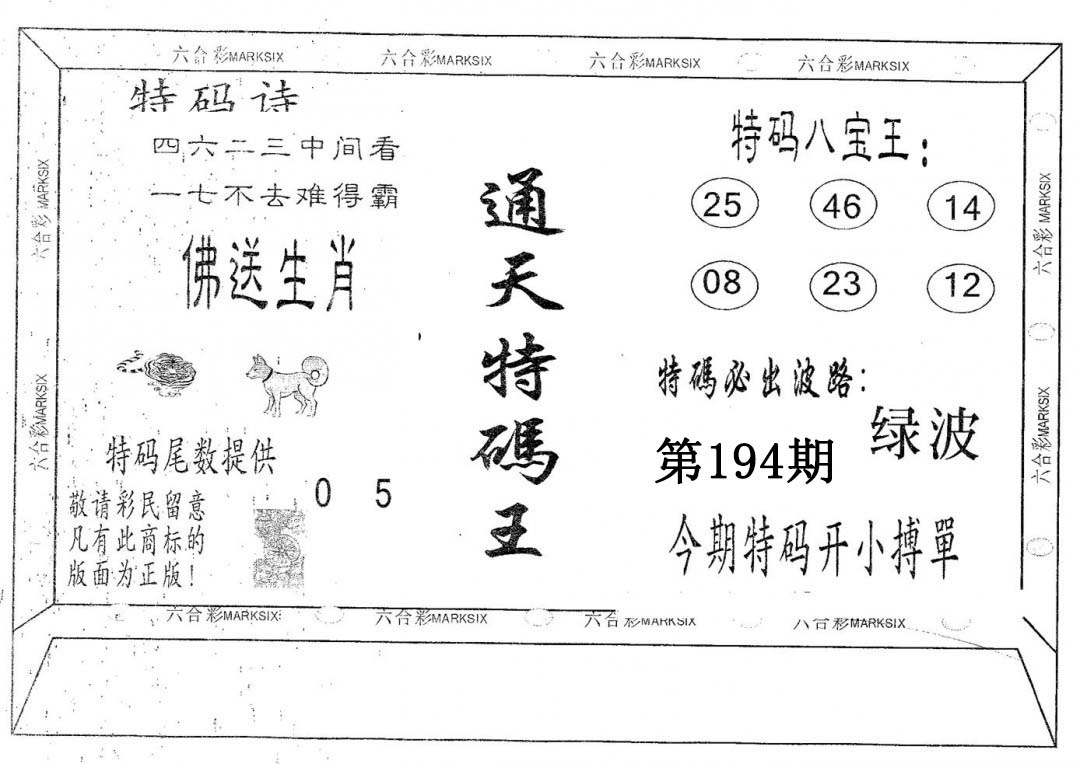 六合彩MARKSIX 六合彩MARKSIX 六合彩MARKSIX 六合彩MARKSIX
六合彩 MARKSIX
六合彩MARKSIX
特码诗
四六二三中间看
一七不去难得霸
佛送生肖
特码尾数提供
0 5
敬请彩民留意
凡有此商标的
版面为正版!
通天特碼王
特码八宝王:
25 46 14
08 23 12
特碼必出波路:
绿波
第194期
今期特码开小搏單
六合彩 MARKSIX
六合彩MARKSIX
六合彩MARKSIX 六合彩MARKSIX 六合彩MARKSIX 六合彩MARKSIX